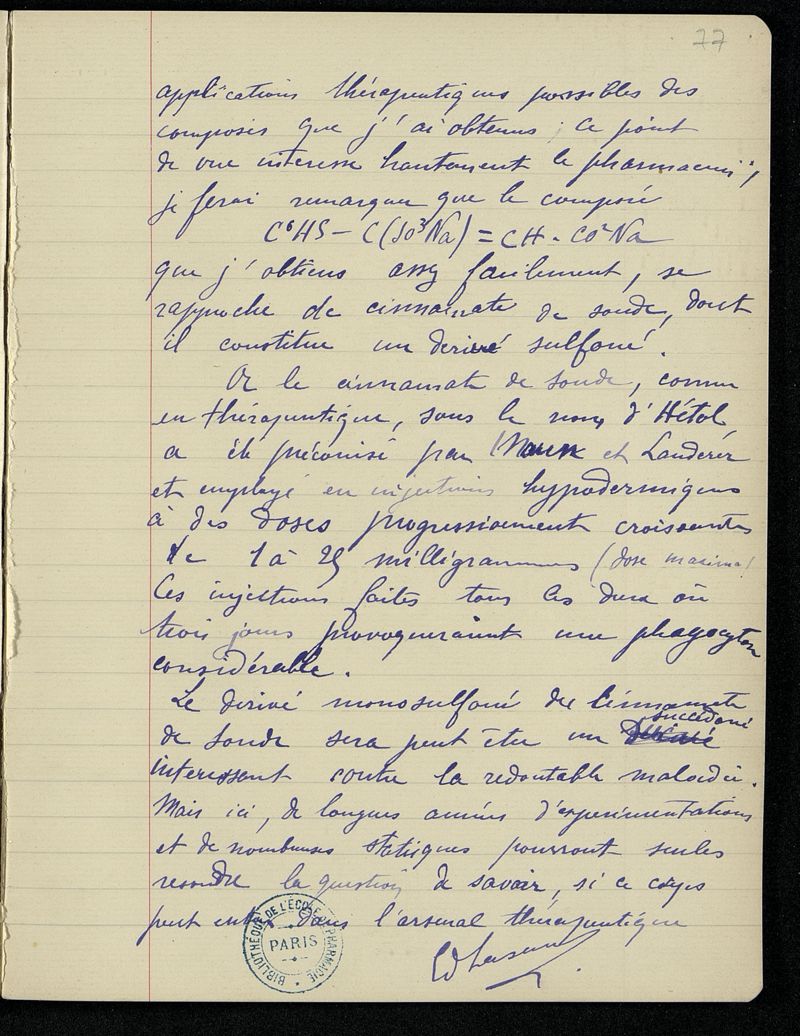 77
applications thérapeutiques possibles des
composés que j'ai obtenus ; ce point
de vue interesse hautement le pharmacien ;
je ferai remarquer que le composé
C⁶H5 – C(SO³Na) = CH - CO²Na
que j'obtiens assez facilement, se
rapproche de cinnamate de soude, dont
il constitue un derivé sulfoné.
Or le cinnamate de soude, connu
en thérapeutique, sous le nom d'Hétol,
a été préconisé par et Landerer
et employé en injections hypodermiques
à des doses progressivement croissantes
de 1 à 25 milligrammes (dose maxima)
Ces injections faites tous les deux ou
trois jours provoqueraient une phagocytose
considérable.
Le dérivé monosulfoné du cinnamate
de soude sera peut être un succédané
interessent contre la redoutable maladie.
Mais ici, de longues années d'experimentations
et de nombreuses statisques pourront seules
resoudre la question de savoir, si ce corps
peut entrer dans l'arsenal thérapeutique
BIBLIOTHÈQUE DE L'ÉCOLE DE PHARMACIE
PARIS